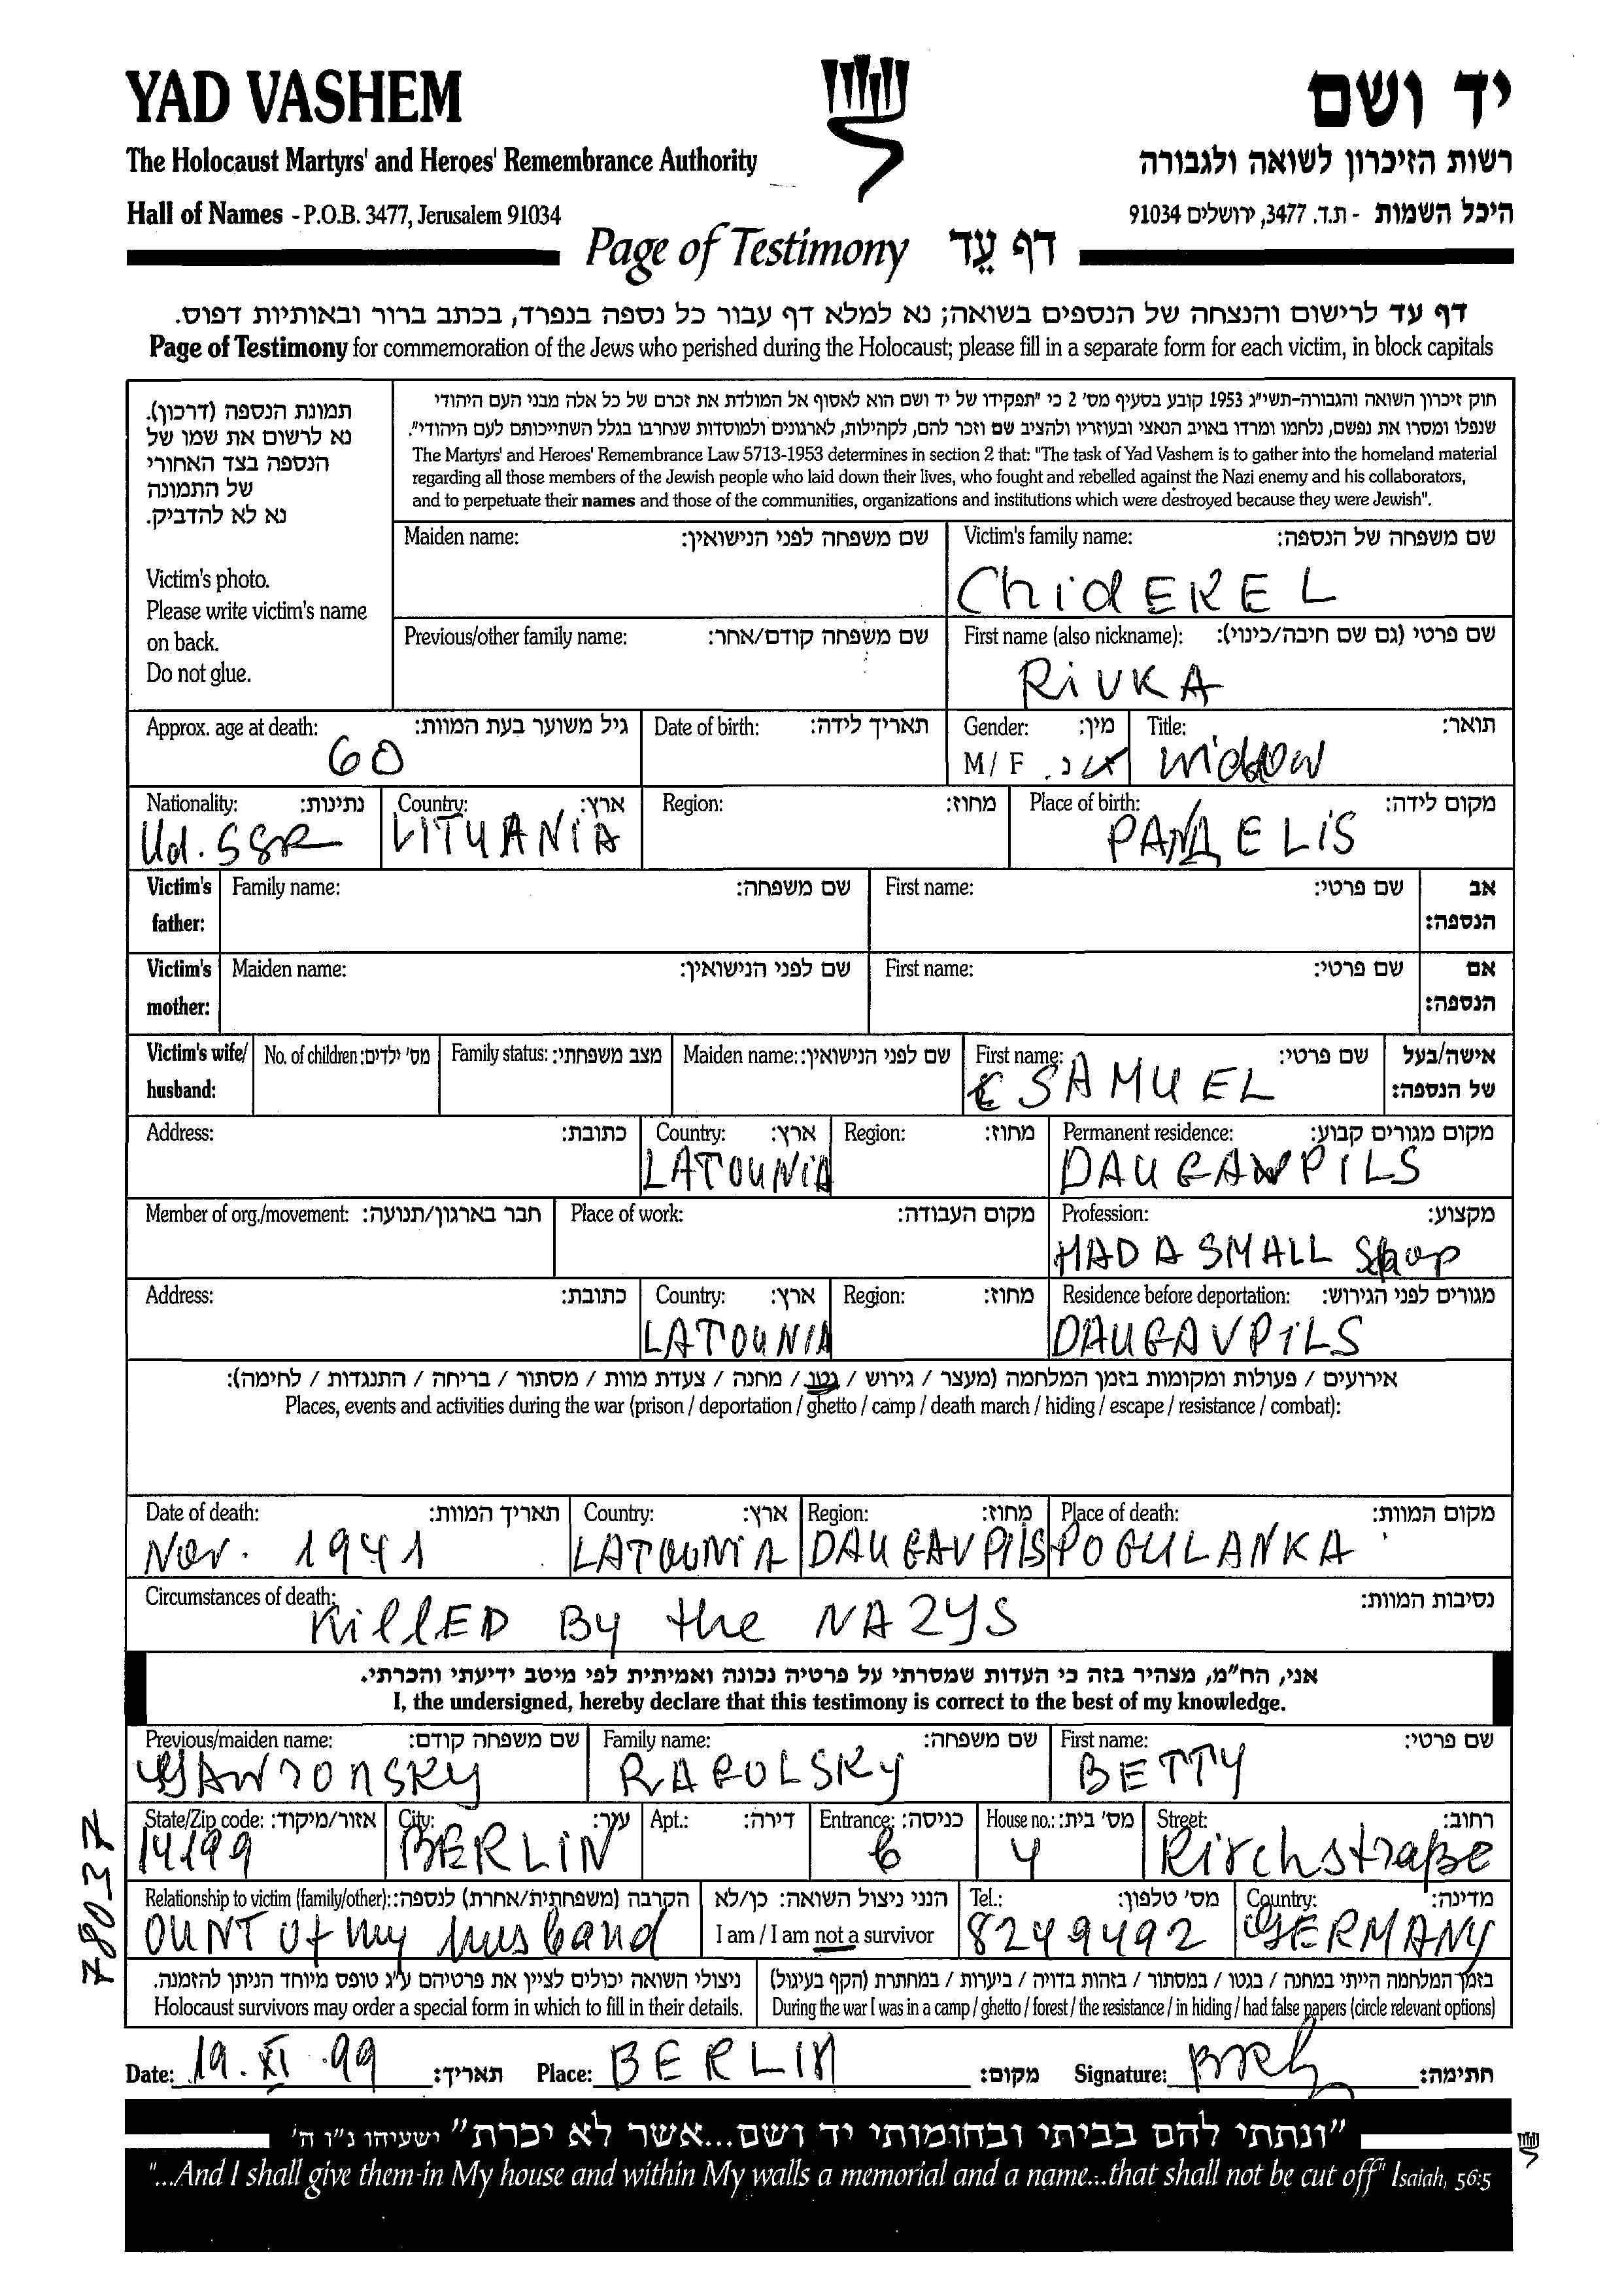 YAD VASHEM
יד ושם
The Holocaust Martyrs' and Heroes' Remembrance Authority
רשות הזיכרון לשואה ולגבורה
Hall of Names - P.O.B. 3477, Jerusalem 91034
היכל השמות - ת.ד. 3477, ירושלים 91034
Page of Testimony דף עֵד
דף עד לרישום והנצחה של הנספים בשואה; נא למלא דף עבור כל נספה בנפרד, בכתב ברור ובאותיות דפוס.
Page of Testimony for commemoration of the Jews who perished during the Holocaust; please fill in a separate form for each victim, in block capitals
תמונת הנספה (דרכון).
נא לרשום את שמו של
הנספה בצד האחורי
של התמונה
נא לא להדביק.
Victim's photo.
Please write victim's name
on back.
Do not glue.
חוק זיכרון השואה והגבורה-תשי"ג 1953 קובע בסעיף מס' 2 כי "תפקידו של יד ושם הוא לאסוף אל המולדת את זכרם של כל אלה מבני העם היהודי
שנפלו ומסרו את נפשם, נלחמו ומרדו באויב הנאצי ובעוזריו ולהציב שם וזכר להם, לקהילות, לארגונים ולמוסדות שנחרבו בגלל השתייכותם לעם היהודי".
The Martyrs' and Heroes' Remembrance Law 5713-1953 determines in section 2 that: "The task of Yad Vashem is to gather into the homeland material
regarding all those members of the Jewish people who laid down their lives, who fought and rebelled against the Nazi enemy and his collaborators,
and to perpetuate their names and those of the communities, organizations and institutions which were destroyed because they were Jewish".
Maiden name: שם משפחה לפני הנישואין: Victim's family name: שם משפחה של הנספה:
ChidEREL
Previous/other family name: שם משפחה קודם/אחר: First name (also nickname): שם פרטי (גם שם חיבה/כינוי):
RiVKA
Approx. age at death: גיל משוער בעת המוות: Date of birth: תאריך לידה: Gender: מין: Title: תואר:
60 M / F widow
Nationality: נתינות: Country: ארץ: Region: מחוז: Place of birth: מקום לידה:
Ud. SSR LITUANiA PANDELiS
Victim's father: Family name: שם משפחה: First name: שם פרטי: אב הנספה:
Victim's mother: Maiden name: שם לפני הנישואין: First name: שם פרטי: אם הנספה:
Victim's wife/ husband: No. of children: מס' ילדים: Family status: מצב משפחתי: Maiden name: שם לפני הנישואין: First name: שם פרטי: אישה/בעל של הנספה:
SAMUEL
Address: כתובת: Country: ארץ: Region: מחוז: Permanent residence: מקום מגורים קבוע:
LATOUNiA DAUGAWPILS
Member of org./movement: חבר בארגון/תנועה: Place of work: מקום העבודה: Profession: מקצוע:
HAD A SMALL Shop
Address: כתובת: Country: ארץ: Region: מחוז: Residence before deportation: מגורים לפני הגירוש:
LATOUNIA DAUGAVPiLS
אירועים / פעולות ומקומות בזמן המלחמה (מעצר / גירוש / גטו / מחנה / צעדת מוות / מסתור / בריחה / התנגדות / לחימה):
Places, events and activities during the war (prison / deportation / ghetto / camp / death march / hiding / escape / resistance / combat):
Date of death: תאריך המוות: Country: ארץ: Region: מחוז: Place of death: מקום המוות:
Nov. 1941 LATOUNiA DAUGAVPilS POGULANKA
Circumstances of death: נסיבות המוות:
KillED By the NAZYS
אני, הח"מ, מצהיר בזה כי העדות שמסרתי על פרטיה נכונה ואמיתית לפי מיטב ידיעתי והכרתי.
I, the undersigned, hereby declare that this testimony is correct to the best of my knowledge.
Previous/maiden name: שם משפחה קודם: Family name: שם משפחה: First name: שם פרטי:
RAGOLSKY BETTY
State/Zip code: אזור/מיקוד: City: עיר: Apt.: דירה: Entrance: כניסה: House no.: מס' בית: Street: רחוב:
14199 BERLiN 4 Kirchstraße
Relationship to victim (family/other): הקרבה (משפחתית/אחרת) לנספה: הנני ניצול השואה: כן/לא Tel.: מס' טלפון: Country: מדינה:
OUNT Of my husband I am / I am not a survivor 8249492 GERMANY
ניצולי השואה יכולים לציין את פרטיהם ע"ג טופס מיוחד הניתן להזמנה.
Holocaust survivors may order a special form in which to fill in their details.
בזמן המלחמה הייתי במחנה / בגטו / במסתור / בזהות בדויה / ביערות / במחתרת (הקף בעיגול)
During the war I was in a camp / ghetto / forest / the resistance / in hiding / had false papers (circle relevant options)
Date: 19. XI. 99 תאריך: Place: BERLIN מקום: Signature: חתימה:
"ונתתי להם בביתי ובחומותי יד ושם...אשר לא יכרת" ישעיהו נ"ו ה'
"...And I shall give them in My house and within My walls a memorial and a name...that shall not be cut off" Isaiah, 56:5
78037